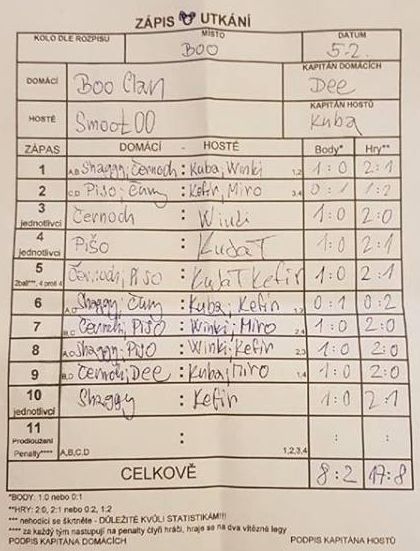 ZÁPIS UTKÁNÍ
KOLO DLE ROZPISU MÍSTO DATUM
BOO 5.2.
DOMÁCÍ Boo Clan KAPITÁN DOMÁCÍCH
Dee
HOSTÉ Smoot00 KAPITÁN HOSTŮ
Kuba
ZÁPAS DOMÁCÍ - HOSTÉ Body* Hry**
1 A,B Shaggy, Černoch : Kuba, Winki 1,2 1:0 2:1
2 C,D Pišo, Čumy : Kefír, Miro 3,4 0:1 1:2
3 jednotlivci Černoch : Winki 1:0 2:0
4 jednotlivci Pišo : KubaT 1:0 2:1
5 2ball***, 4 proti 4 Černoch, Pišo : KubaT Kefír 1:0 2:1
6 A,C Shaggy, Čumy : Kuba, Kefír 1,3 0:1 0:2
7 B,C Černoch, Pišo : Winki, Miro 2,4 1:0 2:0
8 A,D Shaggy, Pišo : Winki, Kefír 2,3 1:0 2:0
9 B,D Černoch, Dee : Kuba, Miro 1,4 1:0 2:0
10 jednotlivci Shaggy : Kefír 1:0 2:1
11 Prodloužení Penalty**** A,B,C,D : 1,2,3,4 : :
CELKOVĚ 8:2 17:8
*BODY: 1:0 nebo 0:1
**HRY: 2:0, 2:1 nebo 0:2, 1:2
*** nehodící se škrtněte - DŮLEŽITÉ KVŮLI STATISTIKÁM!!!
**** za každý tým nastupují na penalty čtyři hráči, hraje se na dva vítězné legy
PODPIS KAPITÁNA DOMÁCÍCH PODPIS KAPITÁNA HOSTŮ